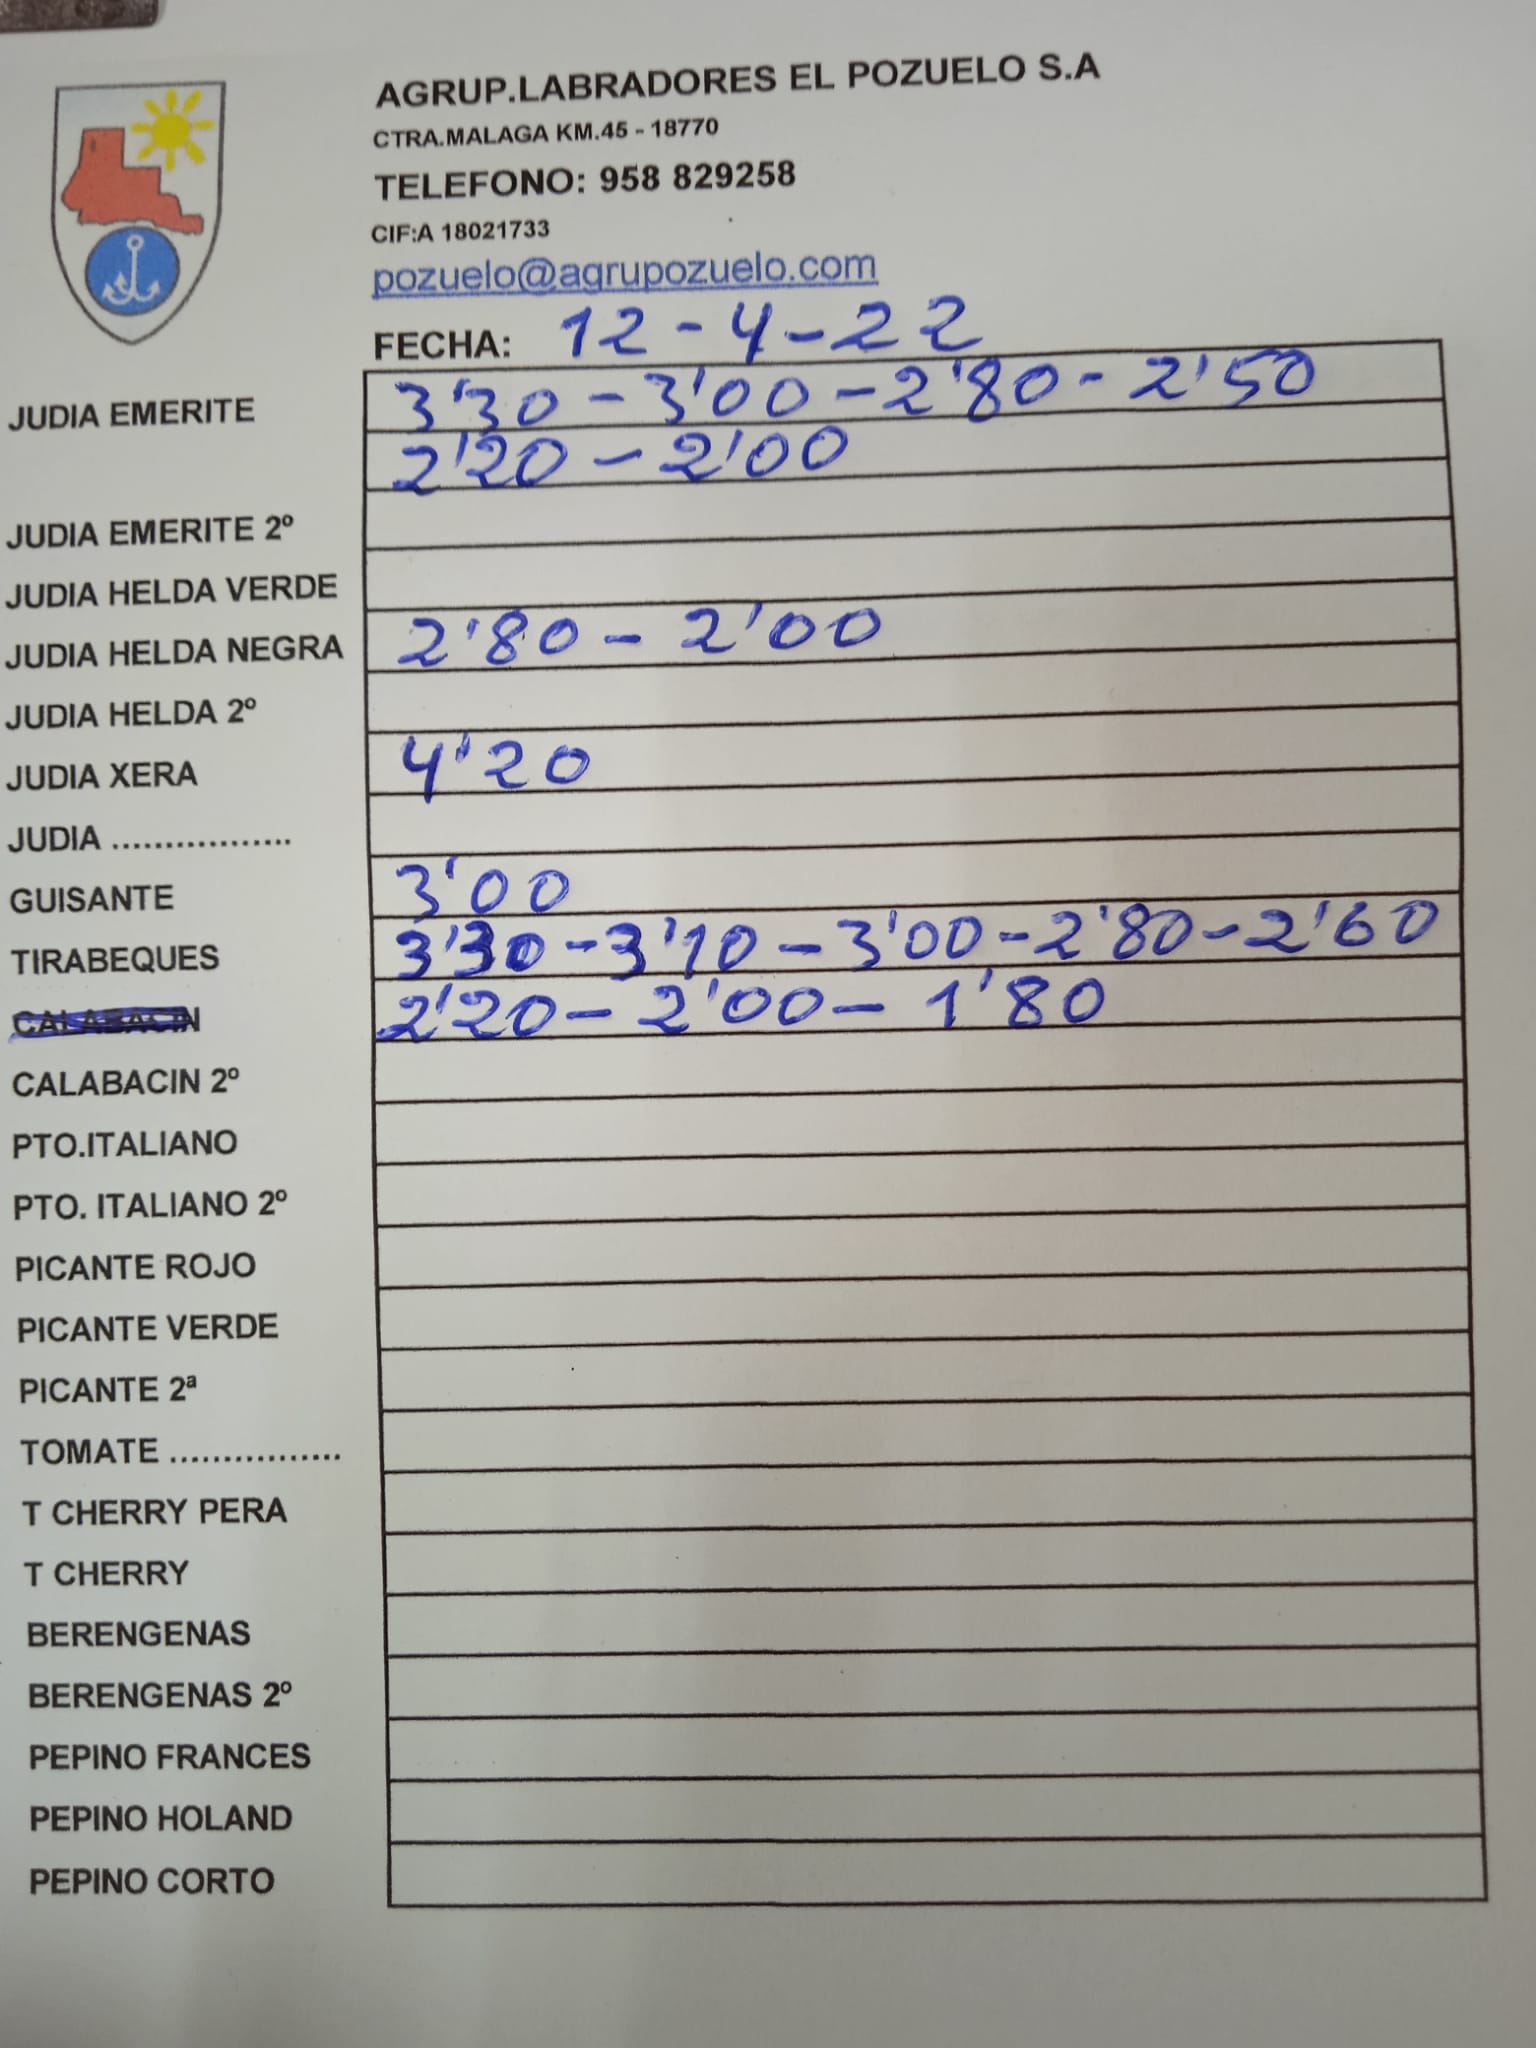 AGRUP.LABRADORES EL POZUELO S.A
CTRA.MALAGA KM.45 - 18770
TELEFONO: 958 829258
CIF:A 18021733
pozuelo@agrupozuelo.com
FECHA: 12-4-22
JUDIA EMERITE 3'30 - 3'00 - 2'80 - 2'50
2'20 - 2'00
JUDIA EMERITE 2º
JUDIA HELDA VERDE
JUDIA HELDA NEGRA 2'80 - 2'00
JUDIA HELDA 2º
JUDIA XERA 4'20
JUDIA .................
GUISANTE 3'00
TIRABEQUES 3'30 - 3'10 - 3'00 - 2'80 - 2'60
CALABACIN 2'20 - 2'00 - 1'80
CALABACIN 2º
PTO.ITALIANO
PTO. ITALIANO 2º
PICANTE ROJO
PICANTE VERDE
PICANTE 2ª
TOMATE ................
T CHERRY PERA
T CHERRY
BERENGENAS
BERENGENAS 2º
PEPINO FRANCES
PEPINO HOLAND
PEPINO CORTO